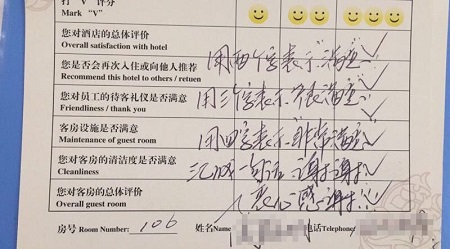 打 "V" 评分
Mark "V"
您对酒店的总体评价
Overall satisfaction with hotel
用两个字表示:满意
您是否会再次入住或向他人推荐
Recommend this hotel to others / retuen
您对员工的待客礼仪是否满意
Friendliness / thank you
用三个字表示:很满意
客房设施是否满意
Maintenance of guest room
用四字表示:非常满意
您对客房的清洁度是否满意
Cleanliness
汇成一句话:谢谢
您对客房的总体评价
Overall guest room
衷心感谢
房号 Room Number: 106 姓名Name 电话Telephone